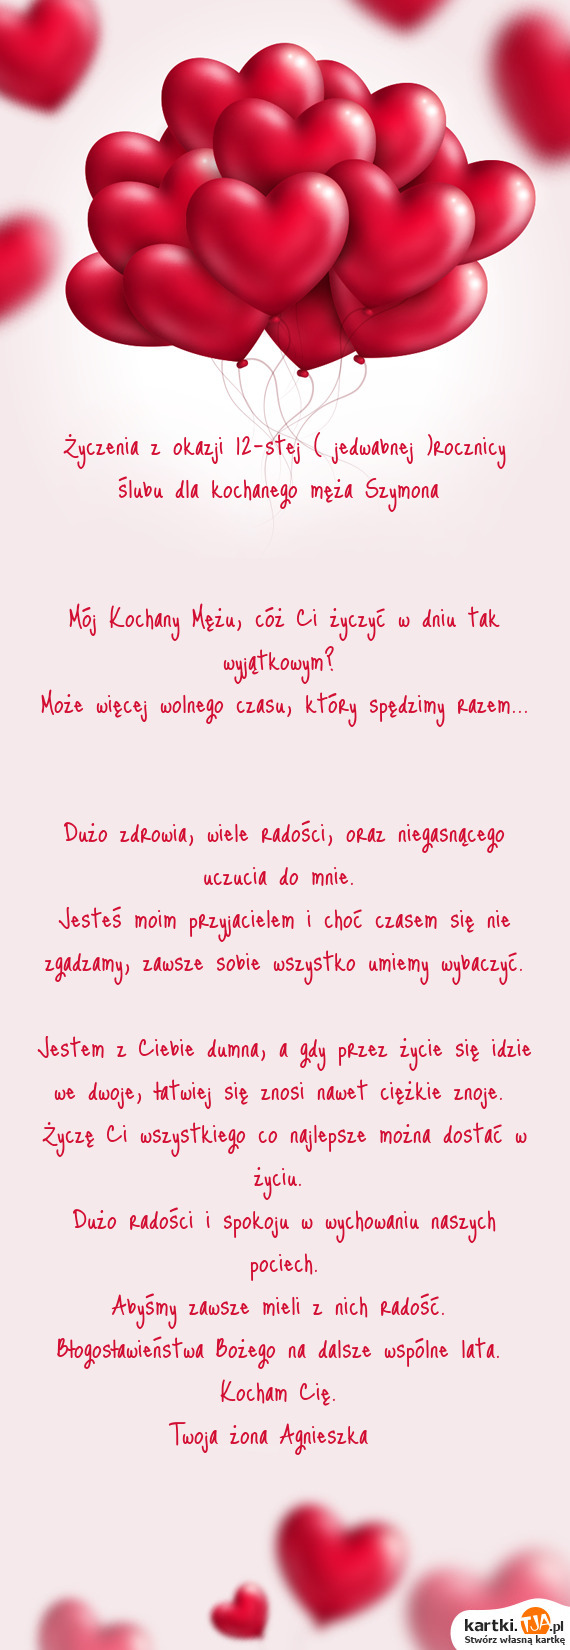 Życzenia z okazji 12-stej ( jedwabnej )rocznicy
ślubu dla kochanego męża Szymona
Mój Kochany Mężu, cóż Ci życzyć w dniu tak
wyjątkowym?
Może więcej wolnego czasu, który spędzimy razem...
Dużo zdrowia, wiele radości, oraz niegasnącego
uczucia do mnie.
Jesteś moim przyjacielem i choć czasem się nie
zgadzamy, zawsze sobie wszystko umiemy wybaczyć.
Jestem z Ciebie dumna, a gdy przez życie się idzie
we dwoje, łatwiej się znosi nawet ciężkie znoje.
Życzę Ci wszystkiego co najlepsze można dostać w
życiu.
Dużo radości i spokoju w wychowaniu naszych
pociech.
Abyśmy zawsze mieli z nich radość.
Błogosławieństwa Bożego na dalsze wspólne lata.
Kocham Cię.
Twoja żona Agnieszka
kartki.TJA.pl
Stwórz własną kartkę